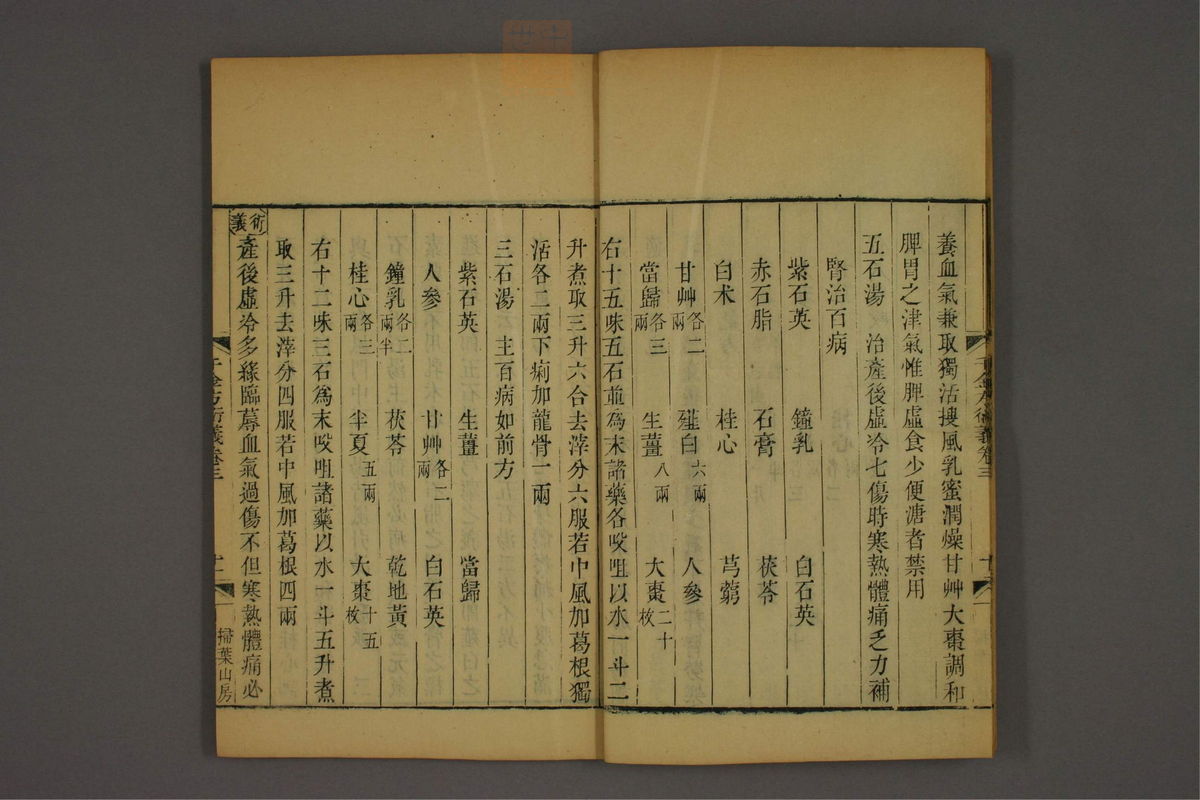 養血氣兼取獨活搜風乳蜜潤燥甘艸大棗調和
脾胃之津氣惟脾虛食少便溏者禁用
五石湯　治產後虛冷七傷時寒熱體痛乏力補
腎治百病
紫石英　鐘乳　白石英
赤石脂　石膏　茯苓
白朮　桂心　芎藭
甘艸各二兩　薤白六兩　人參
當歸各三兩　生薑八兩　大棗二十枚
右十五味五石並為末諸藥各㕮咀以水一斗二
升煮取三升六合去滓分六服若中風加葛根獨
活各二兩下痢加龍骨一兩
三石湯　主百病如前方
紫石英　生薑　當歸
人參　甘艸各二兩　白石英
鐘乳各二兩半　茯苓　乾地黃
桂心各三兩　半夏五兩　大棗十五枚
右十二味三石為末㕮咀諸藥以水一斗五升煮
取三升去滓分四服若中風加葛根四兩
衍義
產後虛冷多緣臨蓐血氣過傷不但寒熱體痛必
千金方衍義卷三
十一
掃葉山房